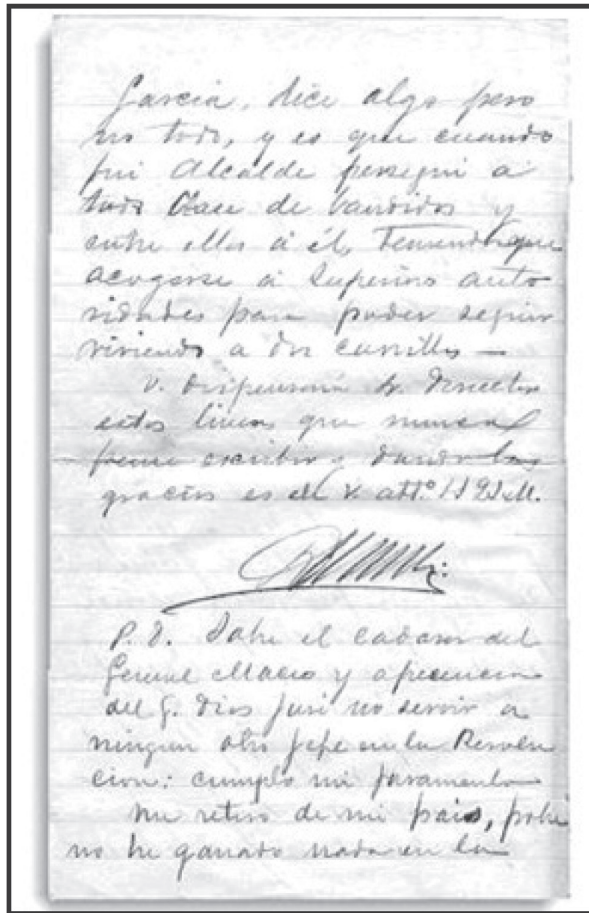 Garcia, dice algo pero
no todo, y es que cuando
fui Alcalde persegui a
toda clase de bandidos y
entre ellos a él, teniendo que
acogerse a Superiores auto
ridades para poder seguir
viviendo a dos carrillos —
V. dispensará Sr. Director
estas lineas que nunca
pense escribir y dandole las
gracias es de V. att.º
P. D. Sobre el cadaver del
General Maceo y a presencia
del G. Dias juré no servir a
ningun otro jefe en la Revolu
cion: cumplo mi juramento
Me retiro de mi pais, pobre
no he ganado nada en la